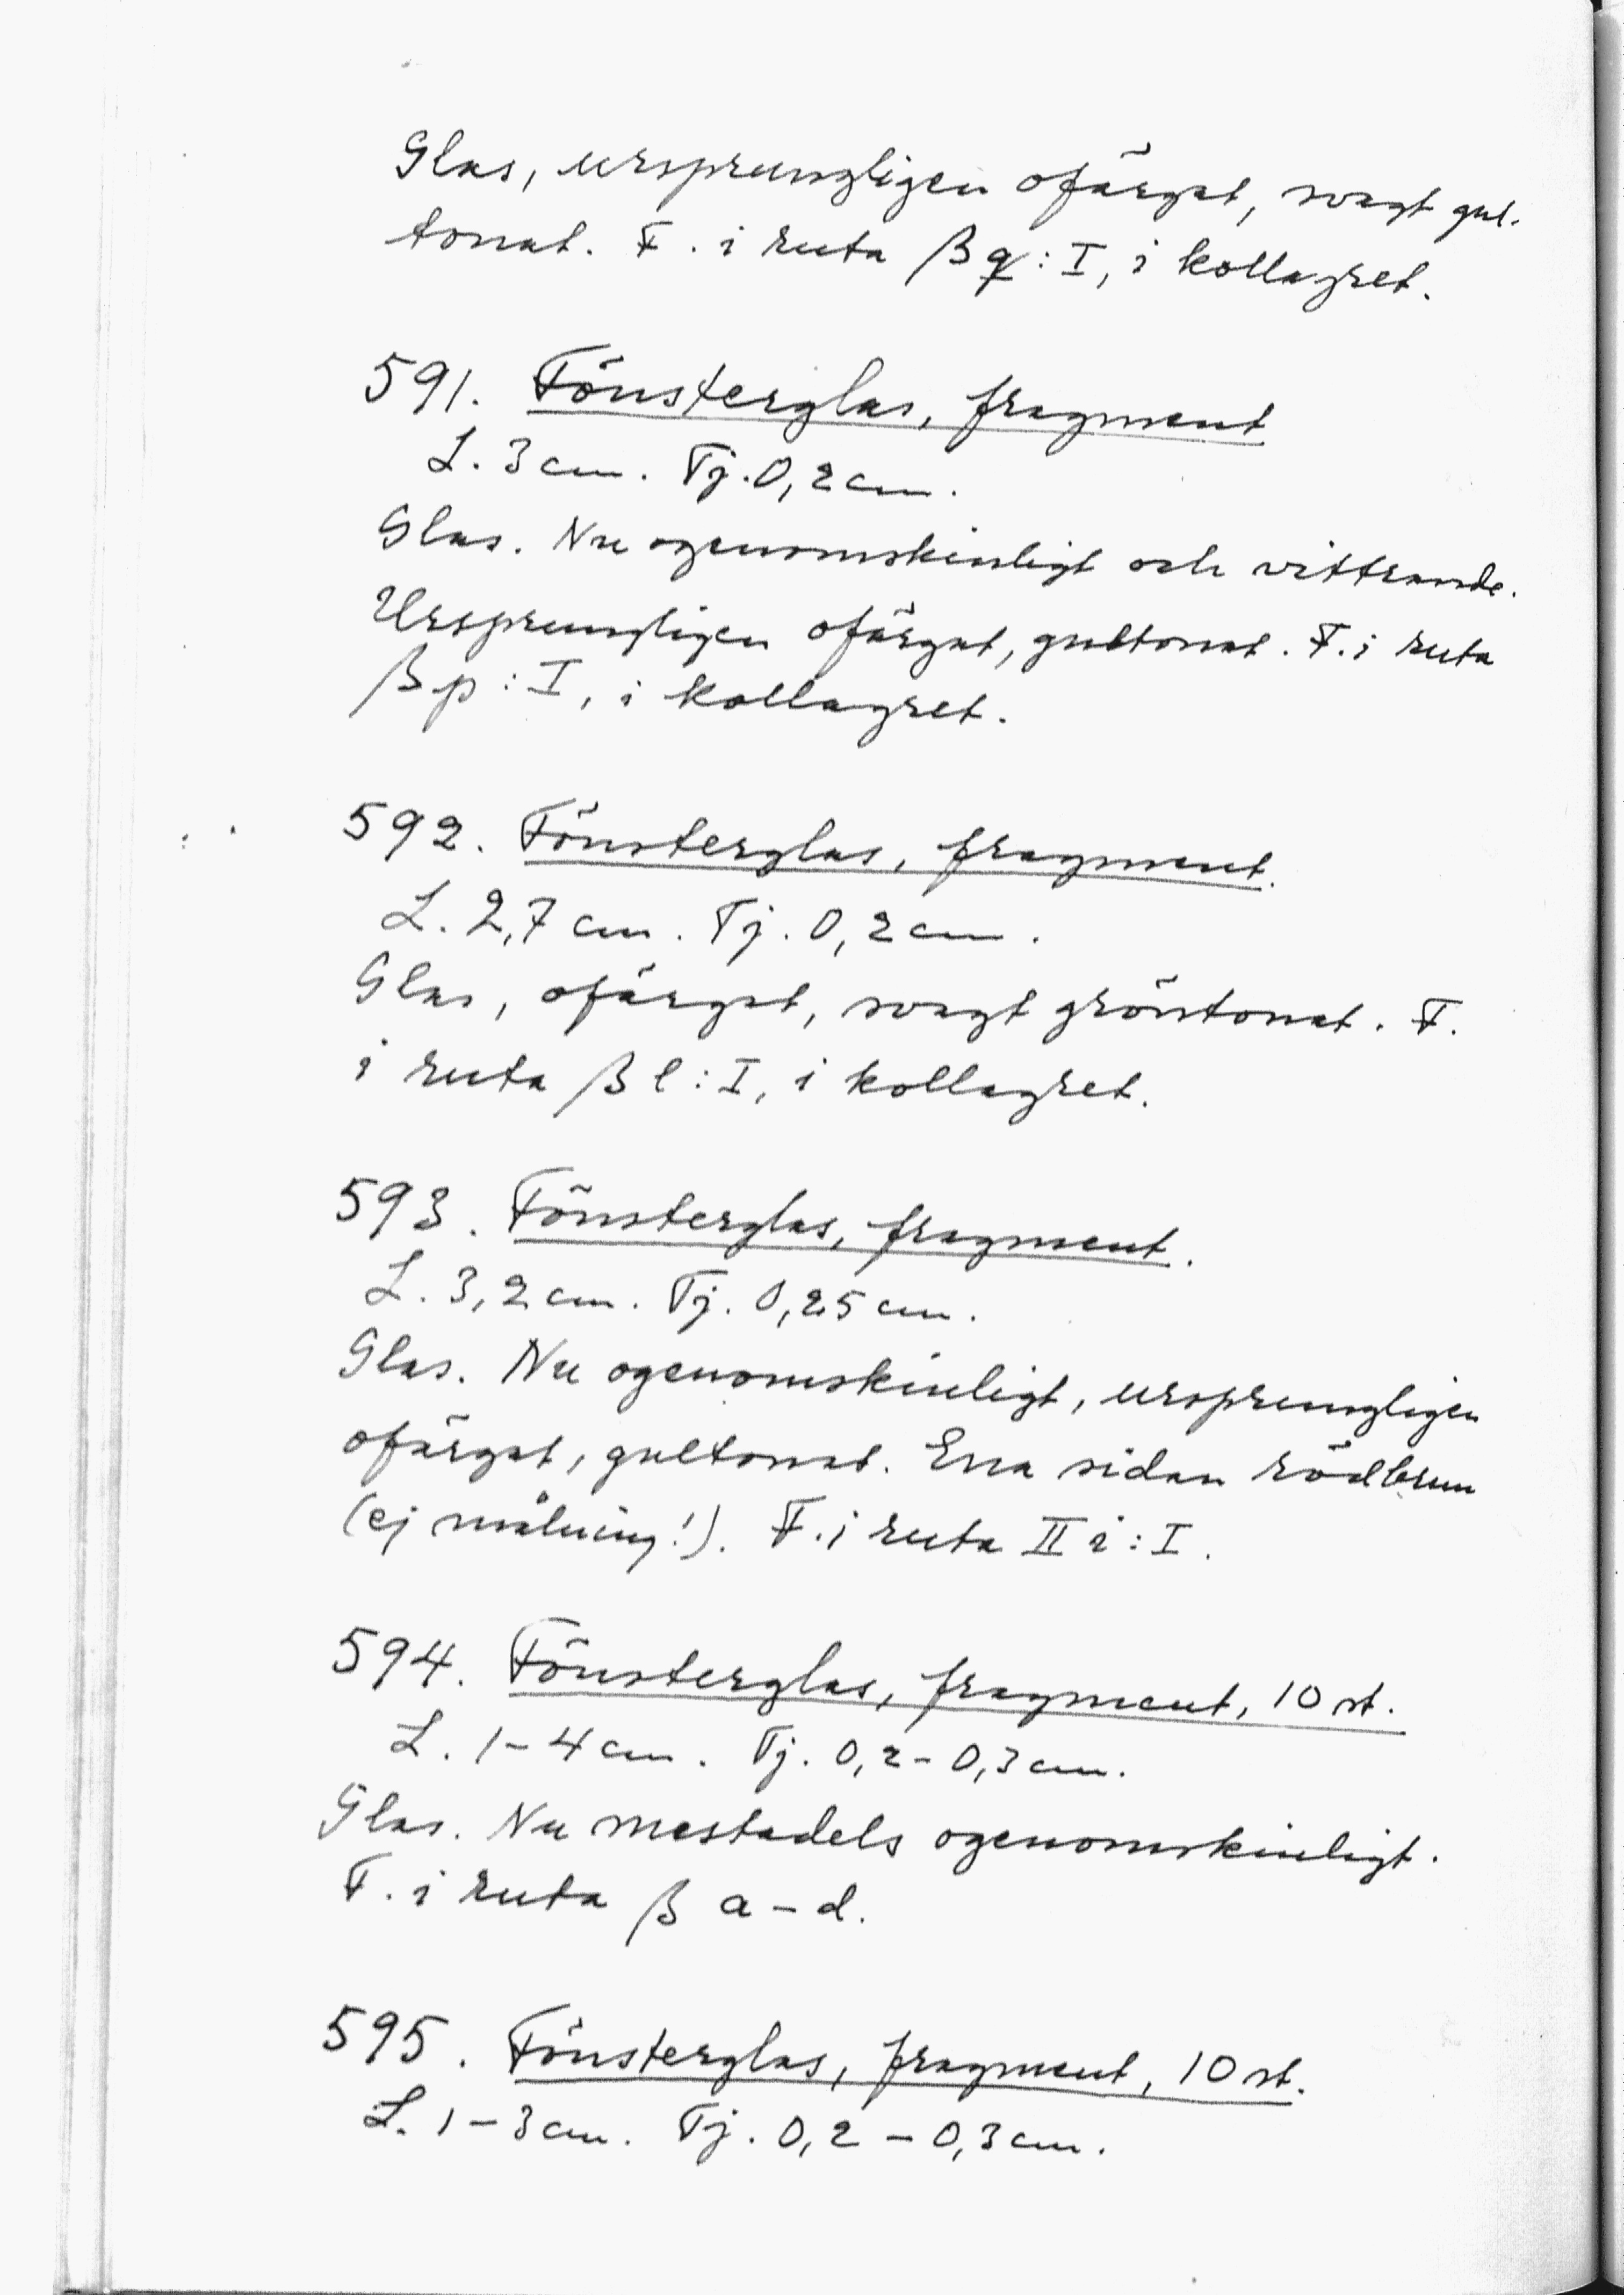 Glas, ursprungligen ofärgat, svagt gul-
tonat. F. i ruta β q : I, i kollagret.
591. Fönsterglas, fragment
L. 3 cm. Tj. 0,2 cm.
Glas. Nu ogenomskinligt och vittrande.
Ursprungligen ofärgat, gultonat. F. i ruta
β p : I, i kollagret.
592. Fönsterglas, fragment.
L. 2,7 cm. Tj. 0,2 cm.
Glas, ofärgat, svagt gröntonat. F.
i ruta β l : I, i kollagret.
593. Fönsterglas, fragment.
L. 3,2 cm. Tj. 0,25 cm.
Glas. Nu ogenomskinligt, ursprungligen
ofärgat, gultonat. Ena sidan rödbrun
(ej målning!). F. i ruta II i : I.
594. Fönsterglas, fragment, 10 st.
L. 1-4 cm. Tj. 0,2-0,3 cm.
Glas. Nu mestadels ogenomskinligt.
F. i ruta β a-d.
595. Fönsterglas, fragment, 10 st.
L. 1-3 cm. Tj. 0,2-0,3 cm.